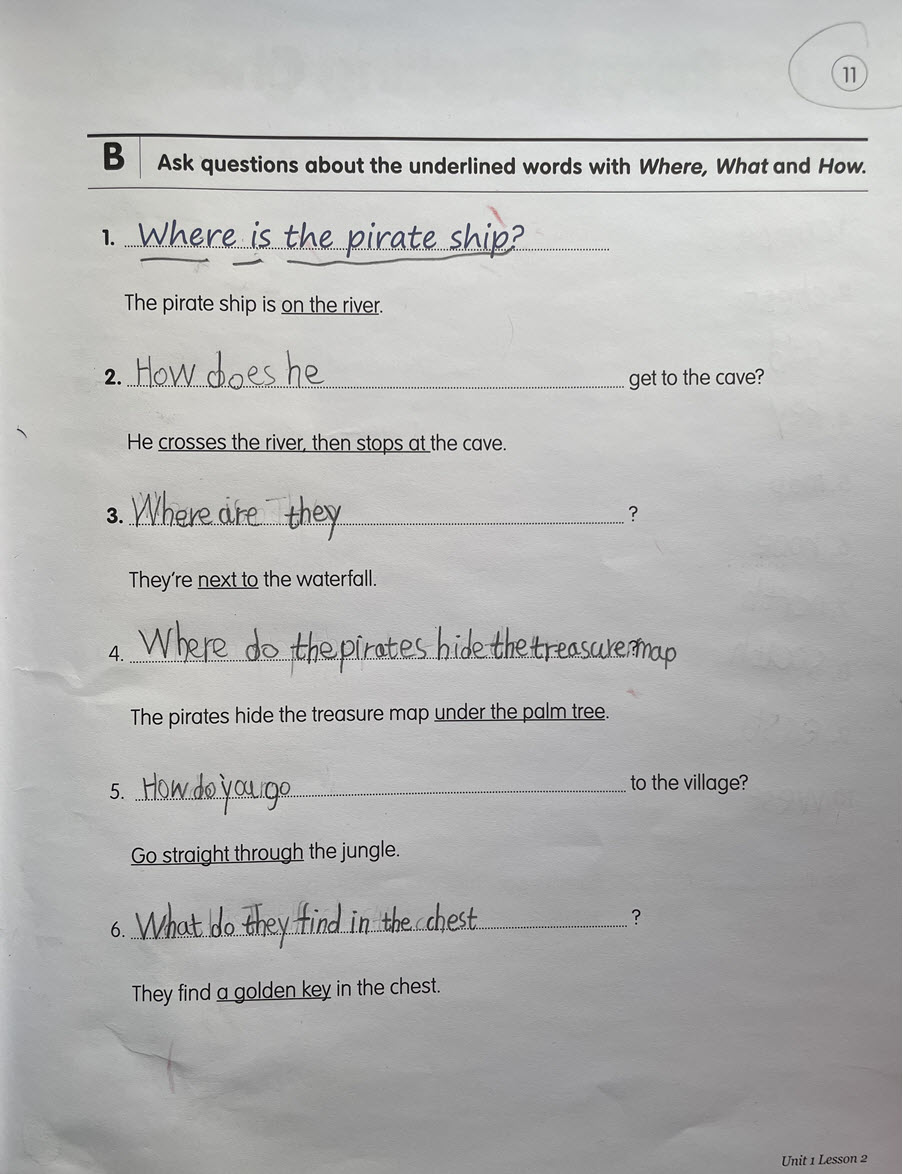 11
B Ask questions about the underlined words with Where, What and How.
1. Where is the pirate ship?
The pirate ship is on the river.
2. How does he get to the cave?
He crosses the river, then stops at the cave.
3. Where are they ?
They're next to the waterfall.
4. Where do the pirates hide the treasure map ?
The pirates hide the treasure map under the palm tree.
5. How do you go to the village?
Go straight through the jungle.
6. What do they find in the chest ?
They find a golden key in the chest.
Unit 1 Lesson 2